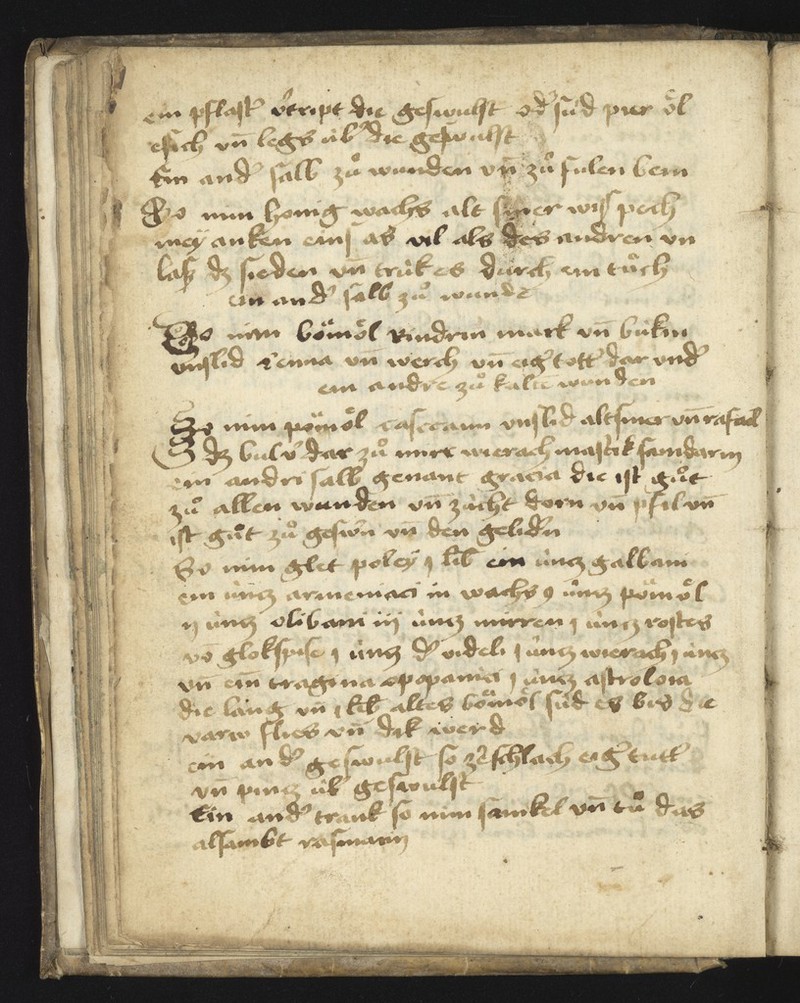 ein pflastˀ vˀtript die geswulst odˀ sud pier öl
esich vn̄ legs úbˀ die geswulst
Ein andˀ salb zuͦ wunden vn̄ zuͦ fulen bein
So nim honig wachs alt smer wis pech
mey anken eins as vil als des andren vn
las dz sieden vn̄ truk es durch ein tuͦch
ein andˀ salb zuͦ wunde
So nim bömöl rindrin mark vn̄ bukin
vnslid vn̄ werch vn̄ eigˀ tottˀ dar vndˀ
ein andre zuͦ kalten wunden
So nim pömöl vnslid alt smer vn̄
dz bulvˀ dar zuͦ mirr wierach mastik
ein andri salb genant gracia die ist guͦt
zuͦ allen wunden vn̄ zúcht dorn vn̄ pfil vn̄
ist guͦt zuͦ vn den gelidˀn
So nim glet poley j lib ein úntz galbani
ein úntz armeniaci in wachs úntz pömöl
ij úntz olibani iij úntz mirren j úntz rostes
vo glokspise j úntz dˀ videli j úntz wierach j úntz
vn̄ ein tragma opopanici j úntz astroloia
die lang vn̄ j lib altes bömöl süd es bis die
varw flies vn̄ dik werd
ein andˀ geswulst so zˀschlach eigˀ tuttˀ
vn̄ pintz úbˀ geswulst
Ein andˀ trank so nim sanikel vn̄ tuͦ das
alsambt